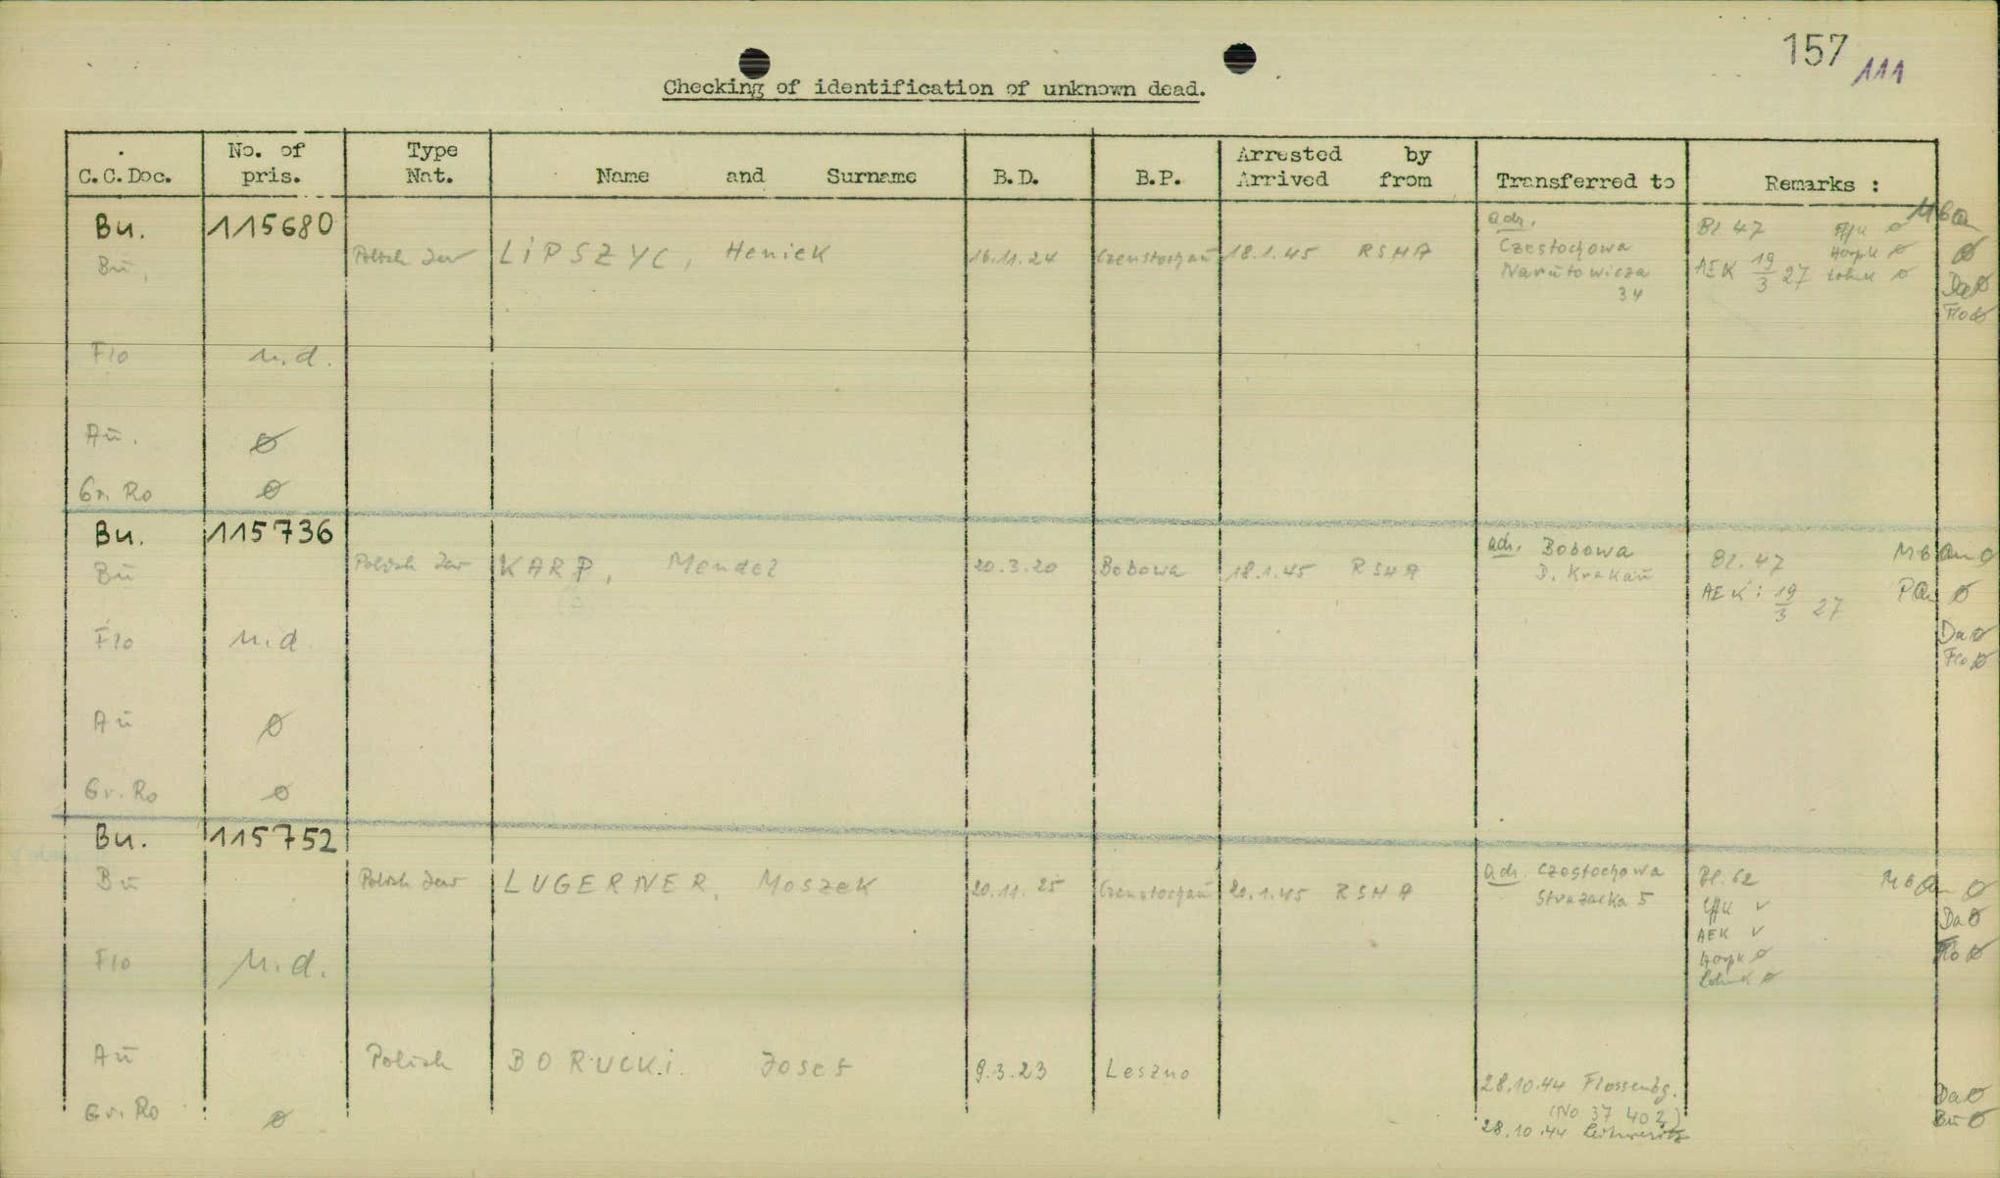 157
111
Checking of identification of unknown dead.
C.C.Doc. No. of pris. Type Nat. Name and Surname B.D. B.P. Arrested by Arrived from Transferred to Remarks :
Bu. 115680
Bu. Polish Jew LIPSZYC, Heniek 16.11.24 Czenstochau 18.1.45 RSHA adr. Czestochowa Narutowicza 34 Bl 47 ∅ MB
AEK 19/3 27 ∅ ∅ ∅
Da ∅
Flo ∅
Flo n.d.
Au. ∅
Gr. Ro ∅
Bu. 115736
Bu Polish Jew KARP, Mendel 20.3.20 Bobowa 18.1.45 RSHA adr. Bobowa D. Krakau Bl. 47 MB ∅
AEK: 19/3 27 ∅
Da ∅
Flo ∅
Flo n.d
Au ∅
Gr. Ro ∅
Bu. 115752
Bu Polish Jew LUGERNER, Moszek 20.11.25 Czenstochau 20.1.45 RSHA adr. Czestochowa Strazacka 5 Bl. 62 MB ∅
✓ Da ∅
AEK ✓
∅ Flo ∅
∅
Flo n.d.
Au Polish BORUCKI Josef 9.3.23 Leszno
28.10.44 Flossenbg. Da ∅
Gr. Ro ∅ (No 37 402) Bu ∅
28.10.44 Leitmeritz